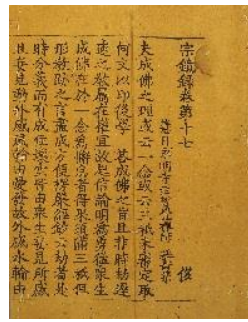 宗鏡録卷第十七 俊
慧日永明寺主智覺禪師 延壽集
夫成佛之理或云一念或云三祇未審定取
何文以印後學 荅成佛之旨且非時劫遲
速之教屬在權宜故起信論明為勇猛眾生
成佛在於一念為懈怠者得果須滿三祇但
形教跡之言盡成方便楞嚴經鈔云劫者是
時分義而有成住壞空皆由眾生妄見所感
且妄見動外感風輪由愛發故外感水輪由